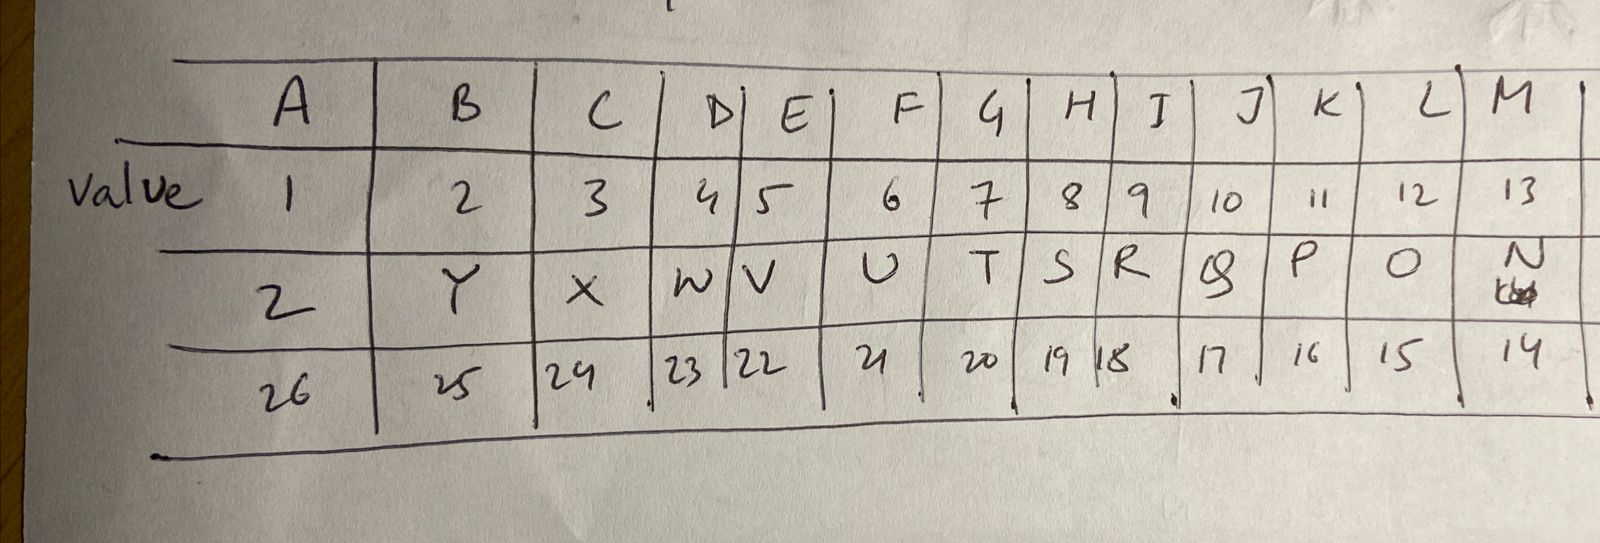 A B C D E F G H I J K L M
value 1 2 3 4 5 6 7 8 9 10 11 12 13
Z Y X W V U T S R Q P O N
26 25 24 23 22 21 20 19 18 17 16 15 14